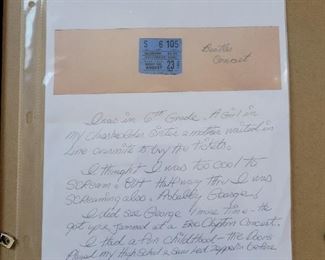 S 6 105
AUGUST
23
Beatles
Concert
I was in 6th Grade. A Girl in
my class & older sister & mother waited in
Line overnite to buy the tickets.
I thought I was too cool to
SCREAM. BUT Half way thru I was
SCREAMING also. Probably George!
I did see George 1 more time - He
got up & jammed at a Eric Clapton Concert.
I Had a Fun Childhood - The Doors
Played my High School & Saw Led Zeppelin before